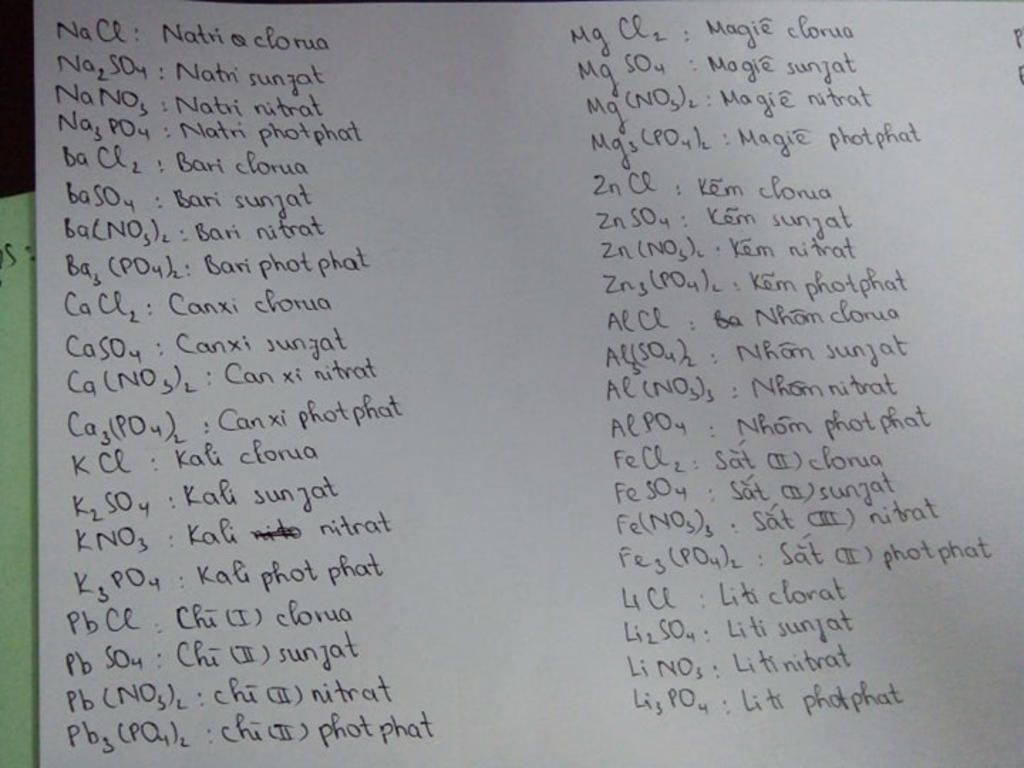 NaCl : Natri clorua
Na₂SO₄ : Natri sunfat
NaNO₃ : Natri nitrat
Na₃PO₄ : Natri photphat
BaCl₂ : Bari clorua
BaSO₄ : Bari sunfat
Ba(NO₃)₂ : Bari nitrat
Ba₃(PO₄)₂ : Bari photphat
CaCl₂ : Canxi clorua
CaSO₄ : Canxi sunfat
Ca(NO₃)₂ : Canxi nitrat
Ca₃(PO₄)₂ : Canxi photphat
KCl : Kali clorua
K₂SO₄ : Kali sunfat
KNO₃ : Kali nitrat
K₃PO₄ : Kali photphat
PbCl : Chì (I) clorua
PbSO₄ : Chì (II) sunfat
Pb(NO₃)₂ : Chì (II) nitrat
Pb₃(PO₄)₂ : Chì (II) photphat
MgCl₂ : Magiê clorua
MgSO₄ : Magiê sunfat
Mg(NO₃)₂ : Magiê nitrat
Mg₃(PO₄)₂ : Magiê photphat
ZnCl : Kẽm clorua
ZnSO₄ : Kẽm sunfat
Zn(NO₃)₂ : Kẽm nitrat
Zn₃(PO₄)₂ : Kẽm photphat
AlCl : Nhôm clorua
Al₃(SO₄)₂ : Nhôm sunfat
Al(NO₃)₃ : Nhôm nitrat
AlPO₄ : Nhôm photphat
FeCl₂ : Sắt (II) clorua
FeSO₄ : Sắt (II) sunfat
Fe(NO₃)₃ : Sắt (III) nitrat
Fe₃(PO₄)₂ : Sắt (II) photphat
LiCl : Liti clorat
Li₂SO₄ : Liti sunfat
LiNO₃ : Liti nitrat
Li₃PO₄ : Liti photphat